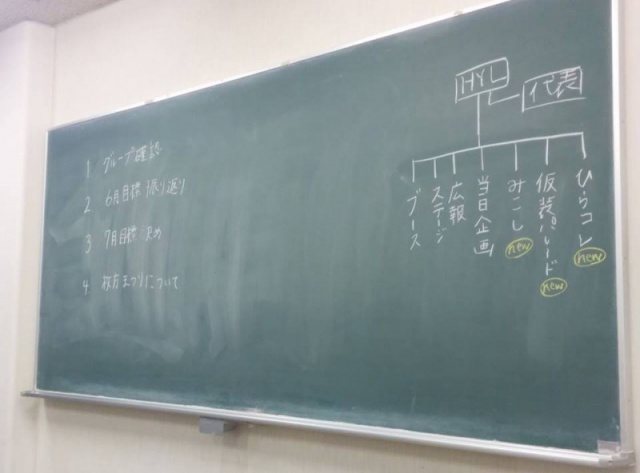 1 グループ確認
2 6月目標振り返り
3 7月目標決め
4 枚方まつりについて
HYL
代表
ブース
ステージ
広報
当日企画
みこし
new
仮装パレード
new
ひらコレ
new